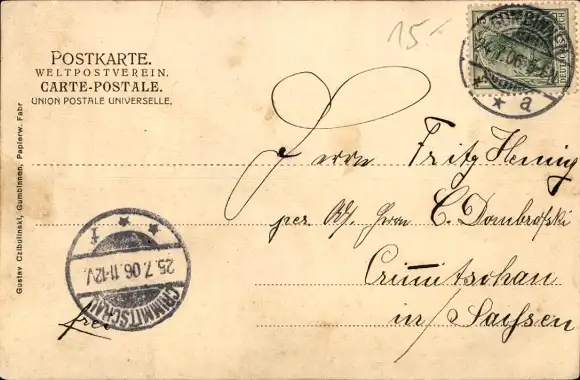 15-
POSTKARTE.
WELTPOSTVEREIN.
CARTE-POSTALE.
UNION POSTALE UNIVERSELLE.
GUMBINNEN
7.06
* a
Gustav Czibulinski, Gumbinnen, Papierw. Fabr
Herrn Fritz Hennig
per Adr. Herrn C. Dombrofski
Crimmitschau
in/Sachsen
CRIMMITSCHAU
25.7.06.11-12V.
frei